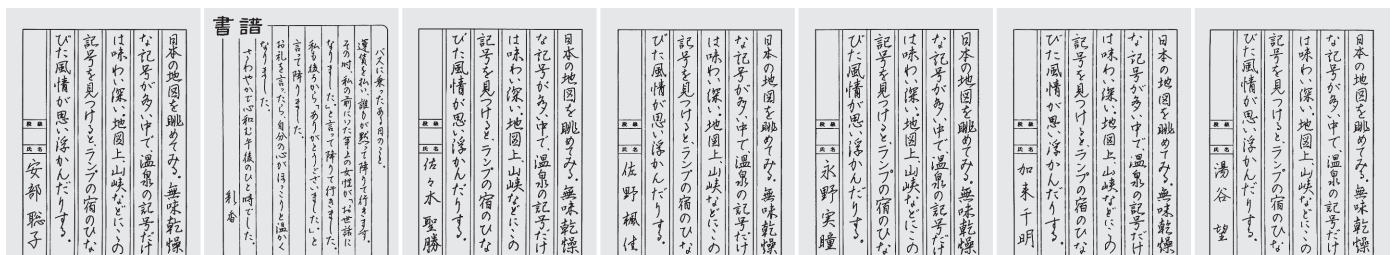 日本の地図を眺めてみる。無味乾燥
な記号が多い中で、温泉の記号だけ
は味わい深い。地図上、山峡などに、この
記号を見つけると、ランプの宿のひな
びた風情が思い浮かんだりする。
段級
氏名
安部聡子
書譜
バスに乗ったある日のこと。
運賃を払い、誰もが黙って降りて行きます。
その時、私の前にいた年上の女性が、「お世話に
なりました。」と言って降りて行きました。
私も後から、「ありがとうございました。」と
言って降りました。
お礼を言ったら、自分の心がほっこりと温かく
なりました。
さわやかで心和む午後のひと時でした。
彩香
日本の地図を眺めてみる。無味乾燥
な記号が多い中で、温泉の記号だけ
は味わい深い。地図上、山峡などに、この
記号を見つけると、ランプの宿のひな
びた風情が思い浮かんだりする。
段級
氏名
佐々木聖勝
日本の地図を眺めてみる。無味乾燥
な記号が多い中で、温泉の記号だけ
は味わい深い。地図上、山峡などに、この
記号を見つけると、ランプの宿のひな
びた風情が思い浮かんだりする。
段級
氏名
佐野楓佳
日本の地図を眺めてみる。無味乾燥
な記号が多い中で、温泉の記号だけ
は味わい深い。地図上、山峡などに、この
記号を見つけると、ランプの宿のひな
びた風情が思い浮かんだりする。
段級
氏名
永野実瞳
日本の地図を眺めてみる。無味乾燥
な記号が多い中で、温泉の記号だけ
は味わい深い。地図上、山峡などに、この
記号を見つけると、ランプの宿のひな
びた風情が思い浮かんだりする。
段級
氏名
加来千明
日本の地図を眺めてみる。無味乾燥
な記号が多い中で、温泉の記号だけ
は味わい深い。地図上、山峡などに、この
記号を見つけると、ランプの宿のひな
びた風情が思い浮かんだりする。
段級
氏名
湯谷望